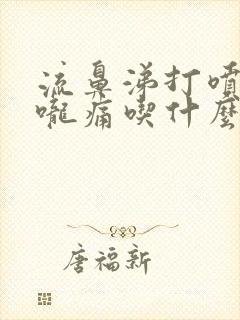 流鼻涕打噴
嚨痛喫什麼
唐福新